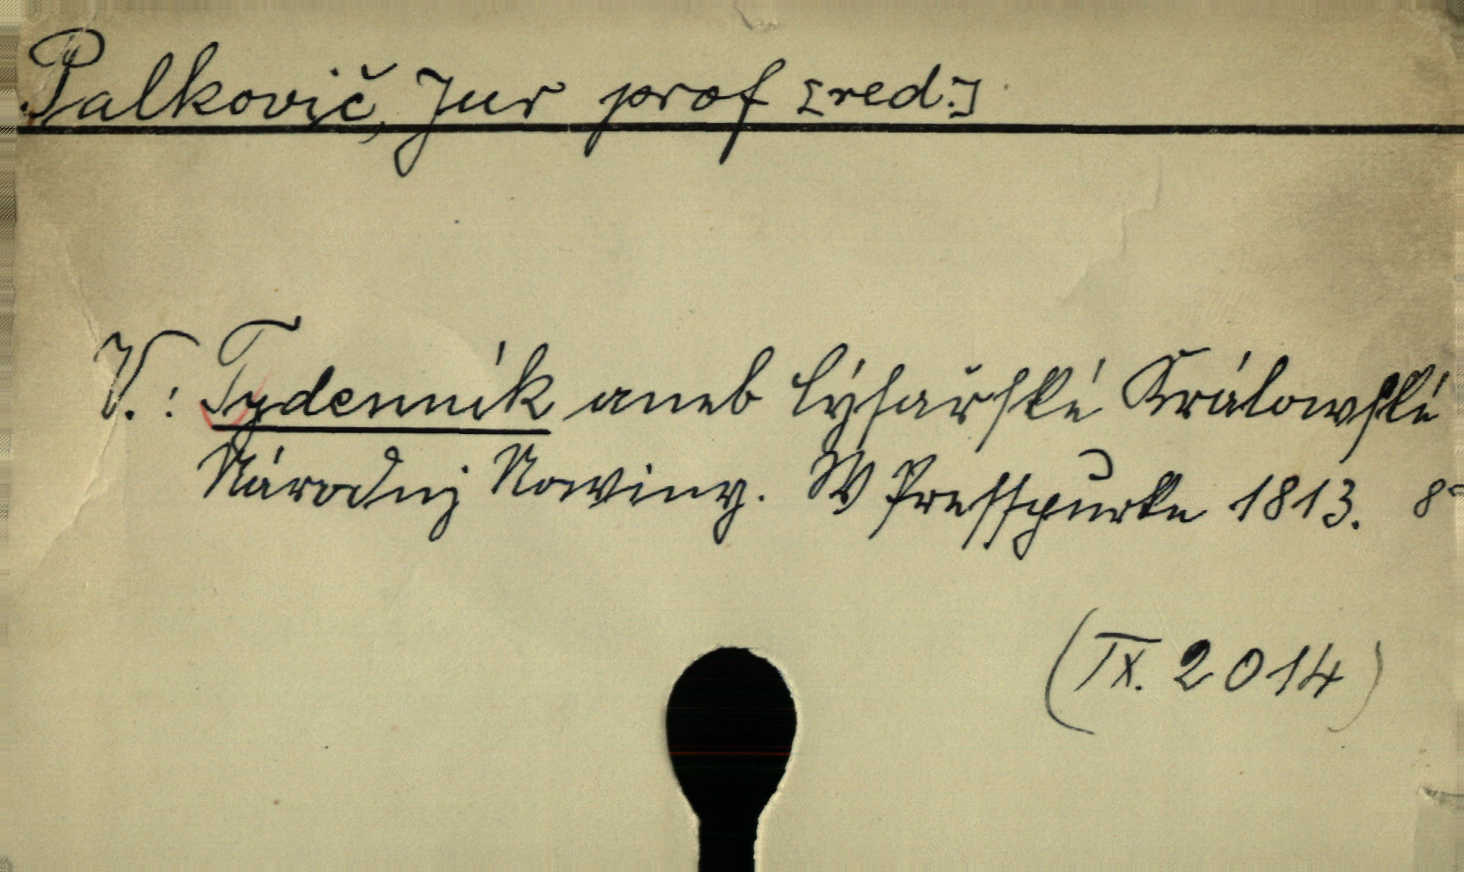 Palkovič, Jur prof [red.]
V.: Tydenník aneb Cýsařské Králowské
Národnj Nowiny. W Presspurku 1813. 8°
(IX. 2014)